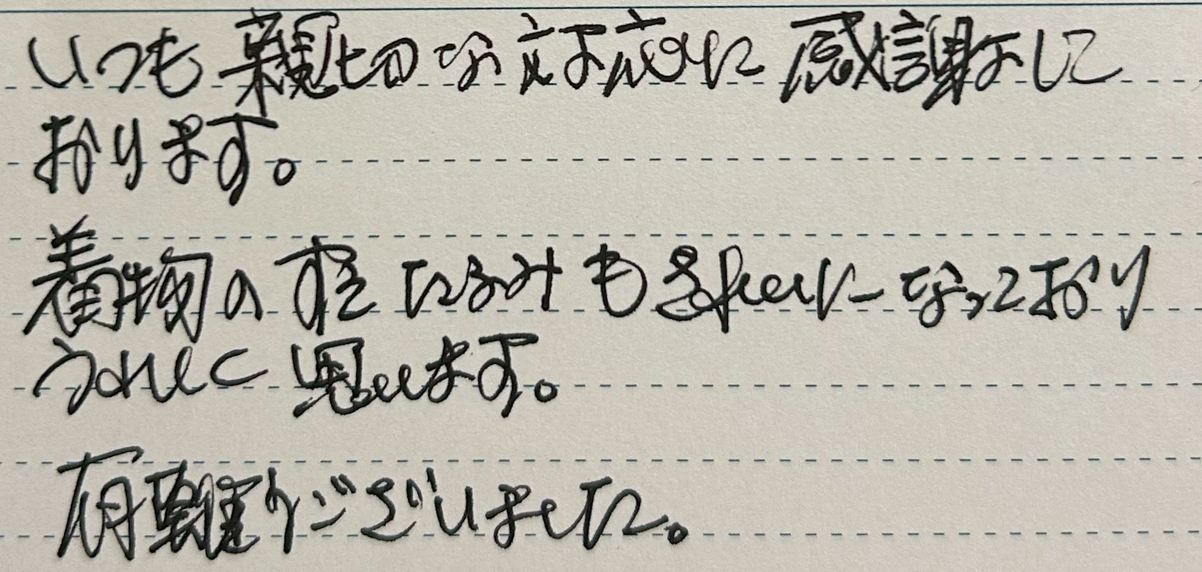 いつも親切な対応に感謝して
おります。
着物の たるみもきれいになっており
うれしく思います。
有難うございました。